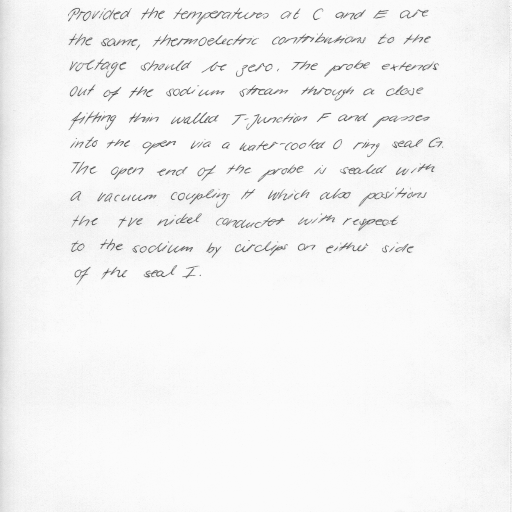 Provided the temperatures at C and E are
the same, thermoelectric contributions to the
voltage should be zero. The probe extends
out of the sodium stream through a close
fitting thin walled T-junction F and passes
into the open via a water-cooled O ring seal G.
The open end of the probe is sealed with
a vacuum coupling H which also positions
the +ve nickel conductor with respect
to the sodium by circlips on either side
of the seal I.